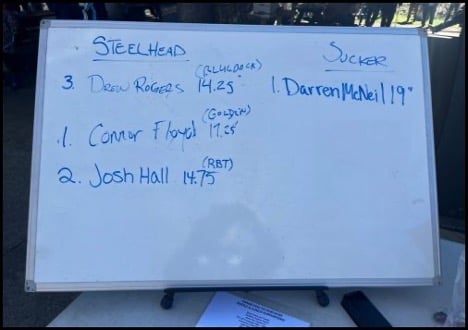 STEELHEAD
3. DREW ROGERS 14.25"
(GOLDEN)
1. Connor Floyd 17.25"
(RBT)
2. Josh Hall 14.75
SUCKER
1. Darren McNeil 19"